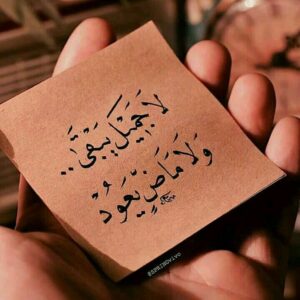 لَا جَمِيْلَ يَبْقَىٰ..
وَلَا مَاضٍ يَّعُوْدْ